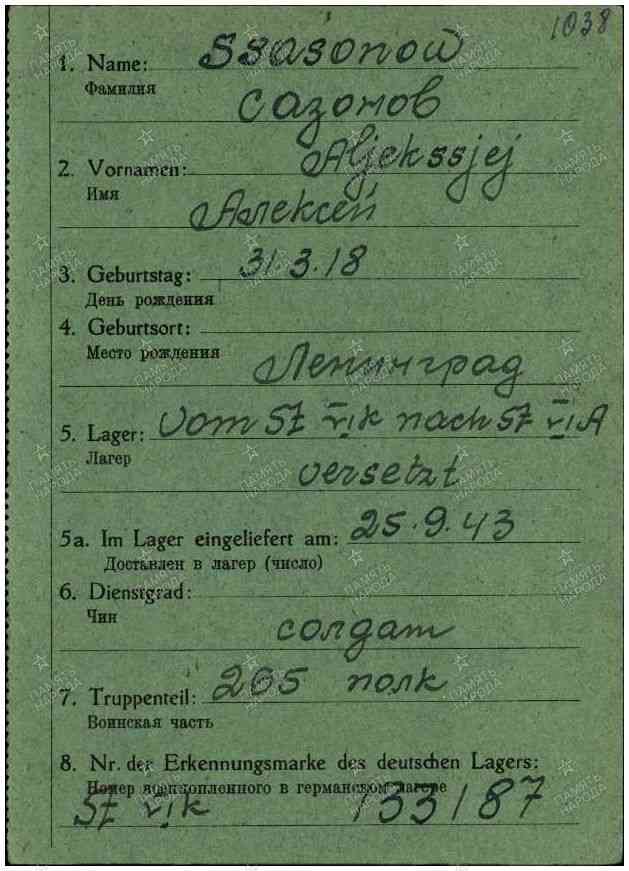 1038
1. Name: Ssasonow
Фамилия
Сазонов
2. Vornamen: Aljekssjej
Имя
Алексей
3. Geburtstag: 31 3.18
День рождения
4. Geburtsort:
Место рождения
Ленинград
5. Lager: vom St VI k nach St VI A
Лагер
versetzt
5a. Im Lager eingeliefert am: 25.9.43
Доставлен в лагер (число)
6. Dienstgrad:
Чин
солдат
7. Truppenteil: 265 полк
Воинская часть
8. Nr. der Erkennungsmarke des deutschen Lagers:
Номер военнопленного в германском лагере
St VI k 133187